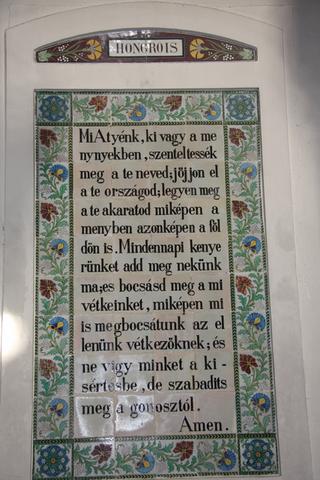 HONGROIS
Mi Atyénk, ki vagy a me
nynyekben, szenteltessék
meg a te neved; jöjjon el
a te országod; legyen meg
a te akaratod miképen a
menyben azonképen a föl
dön is. Mindennapi kenye
rünket add meg nekünk
ma; es bocsásd meg a mi
vétkeinket, miképen mi
is megbocsátunk az el
lenünk vétkezöknek; és
ne vigy minket a ki-
sértesbe, de szabadits
meg a gonosztól.
Amen.